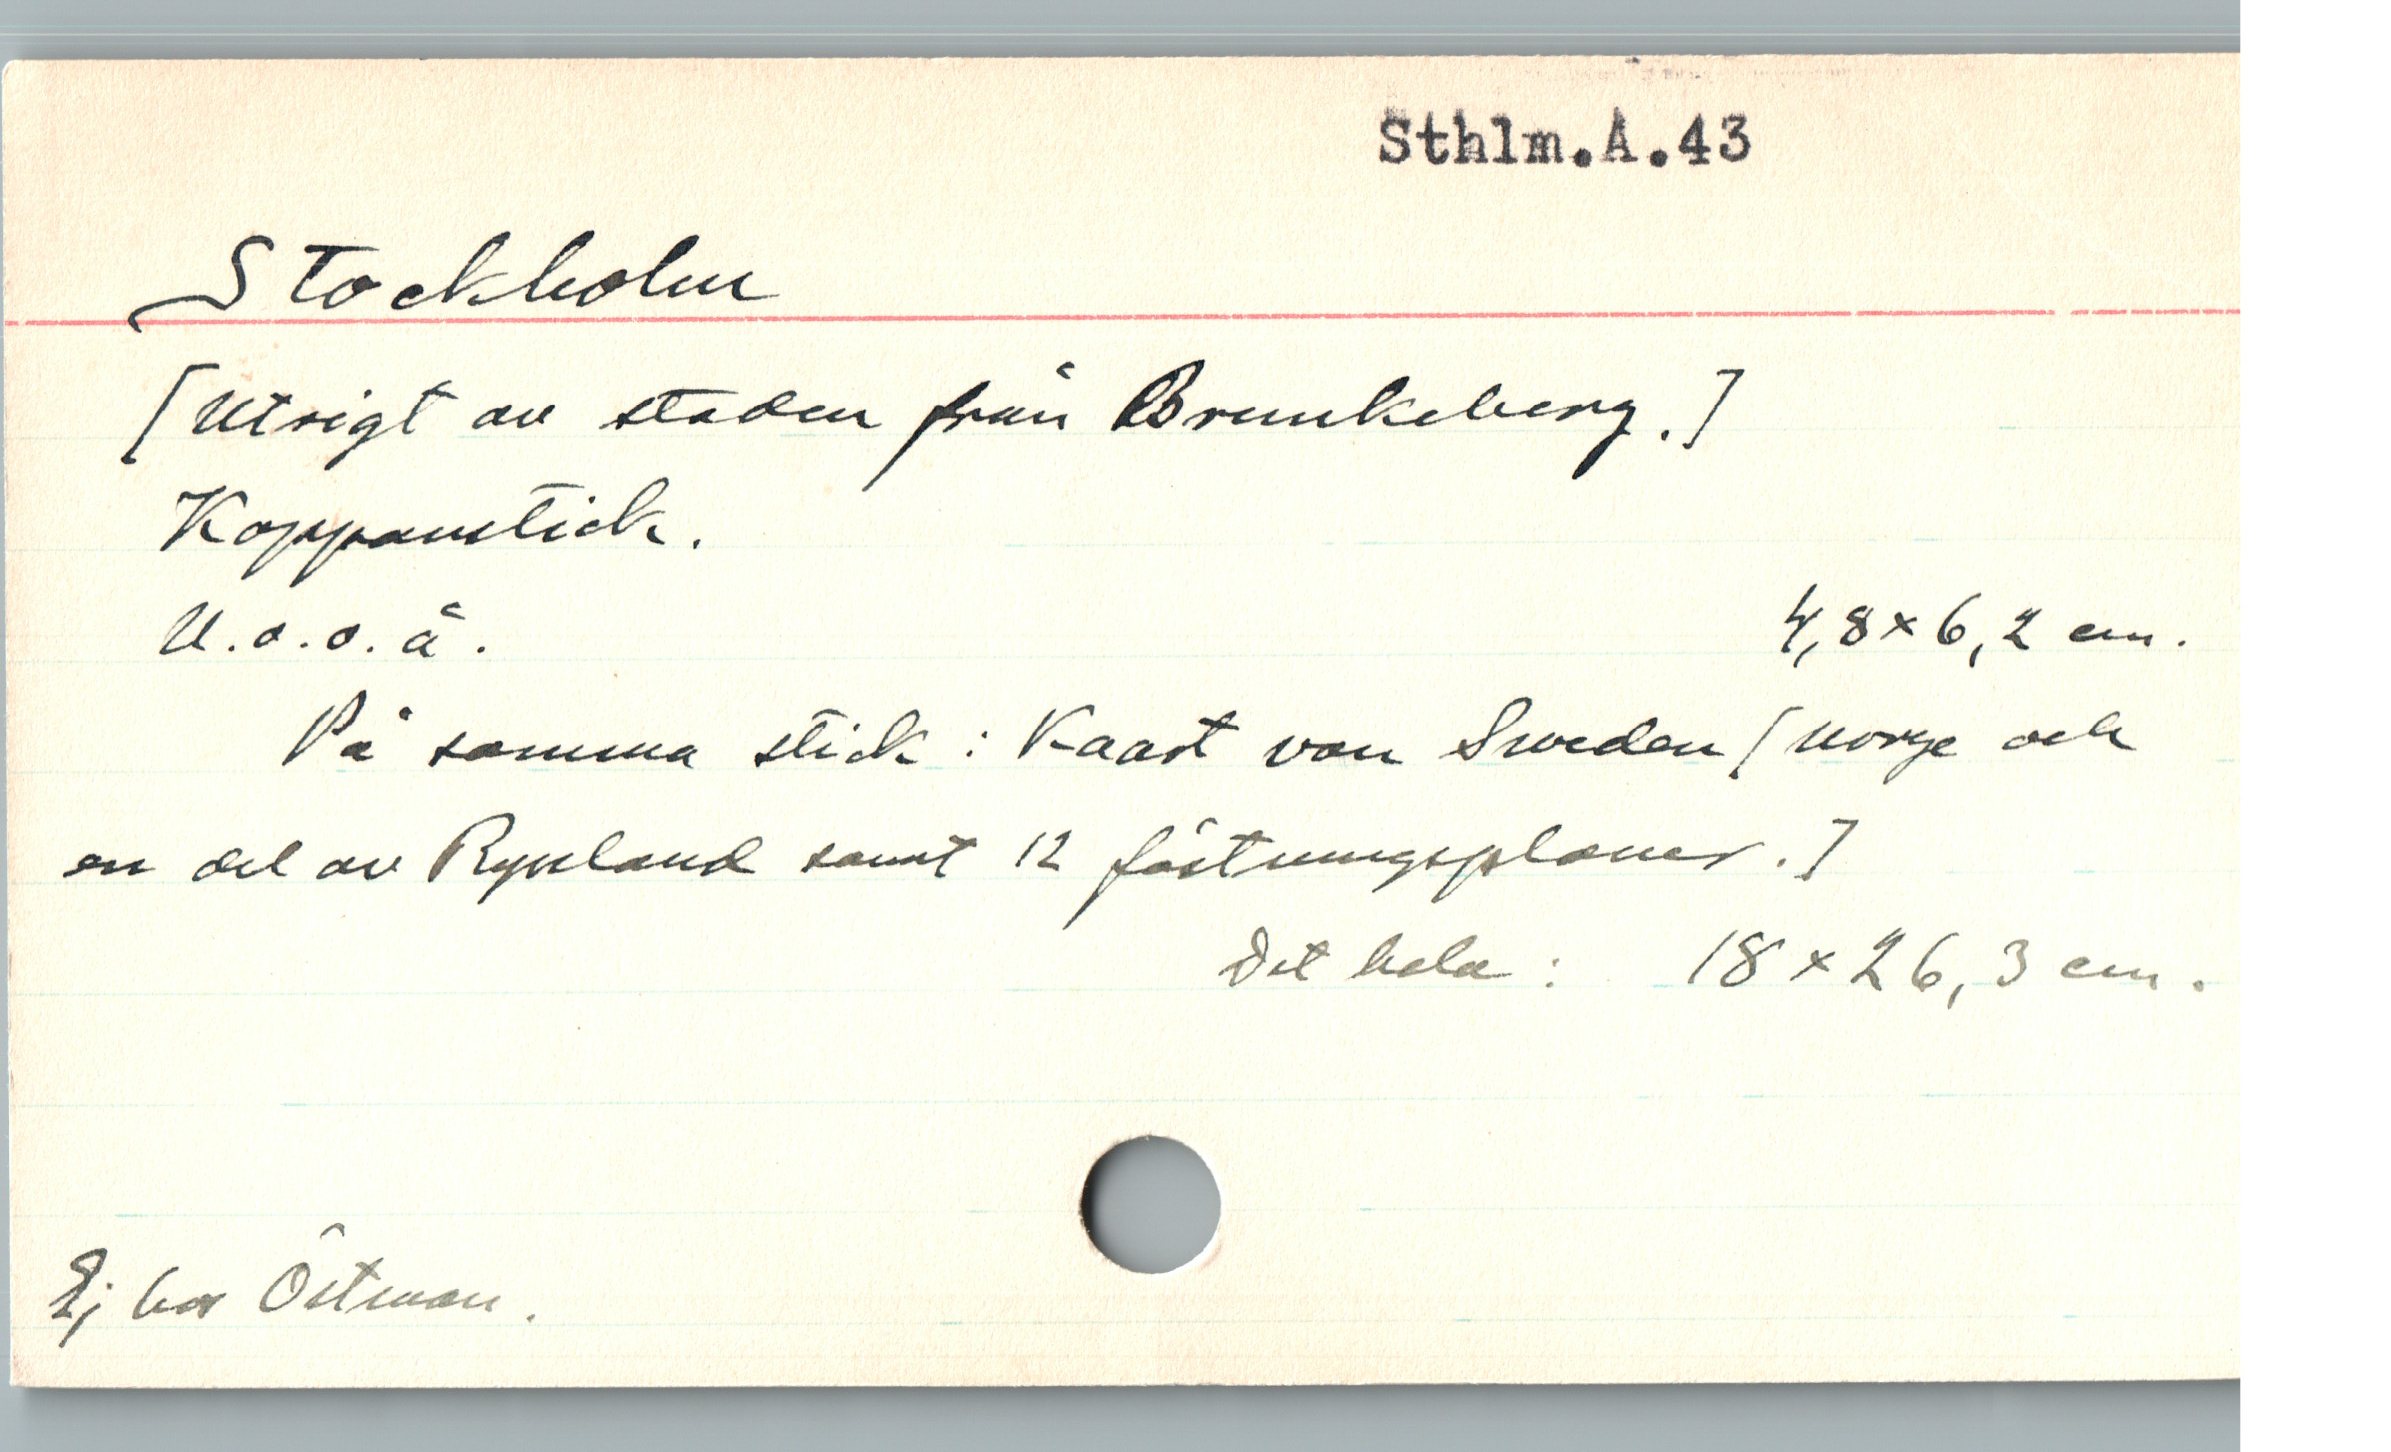 Sthlm.A.43
Stockholm
[Utsigt av staden från Brunkeberg.]
Kopparstick.
U.o.o.å.
4,8×6,2 cm.
På samma stick: Kaart van Sweden [Norge och
en del av Ryssland samt 12 fästningsplaner.]
Det hela: 18×26,3 cm.
Ej hos Östman.